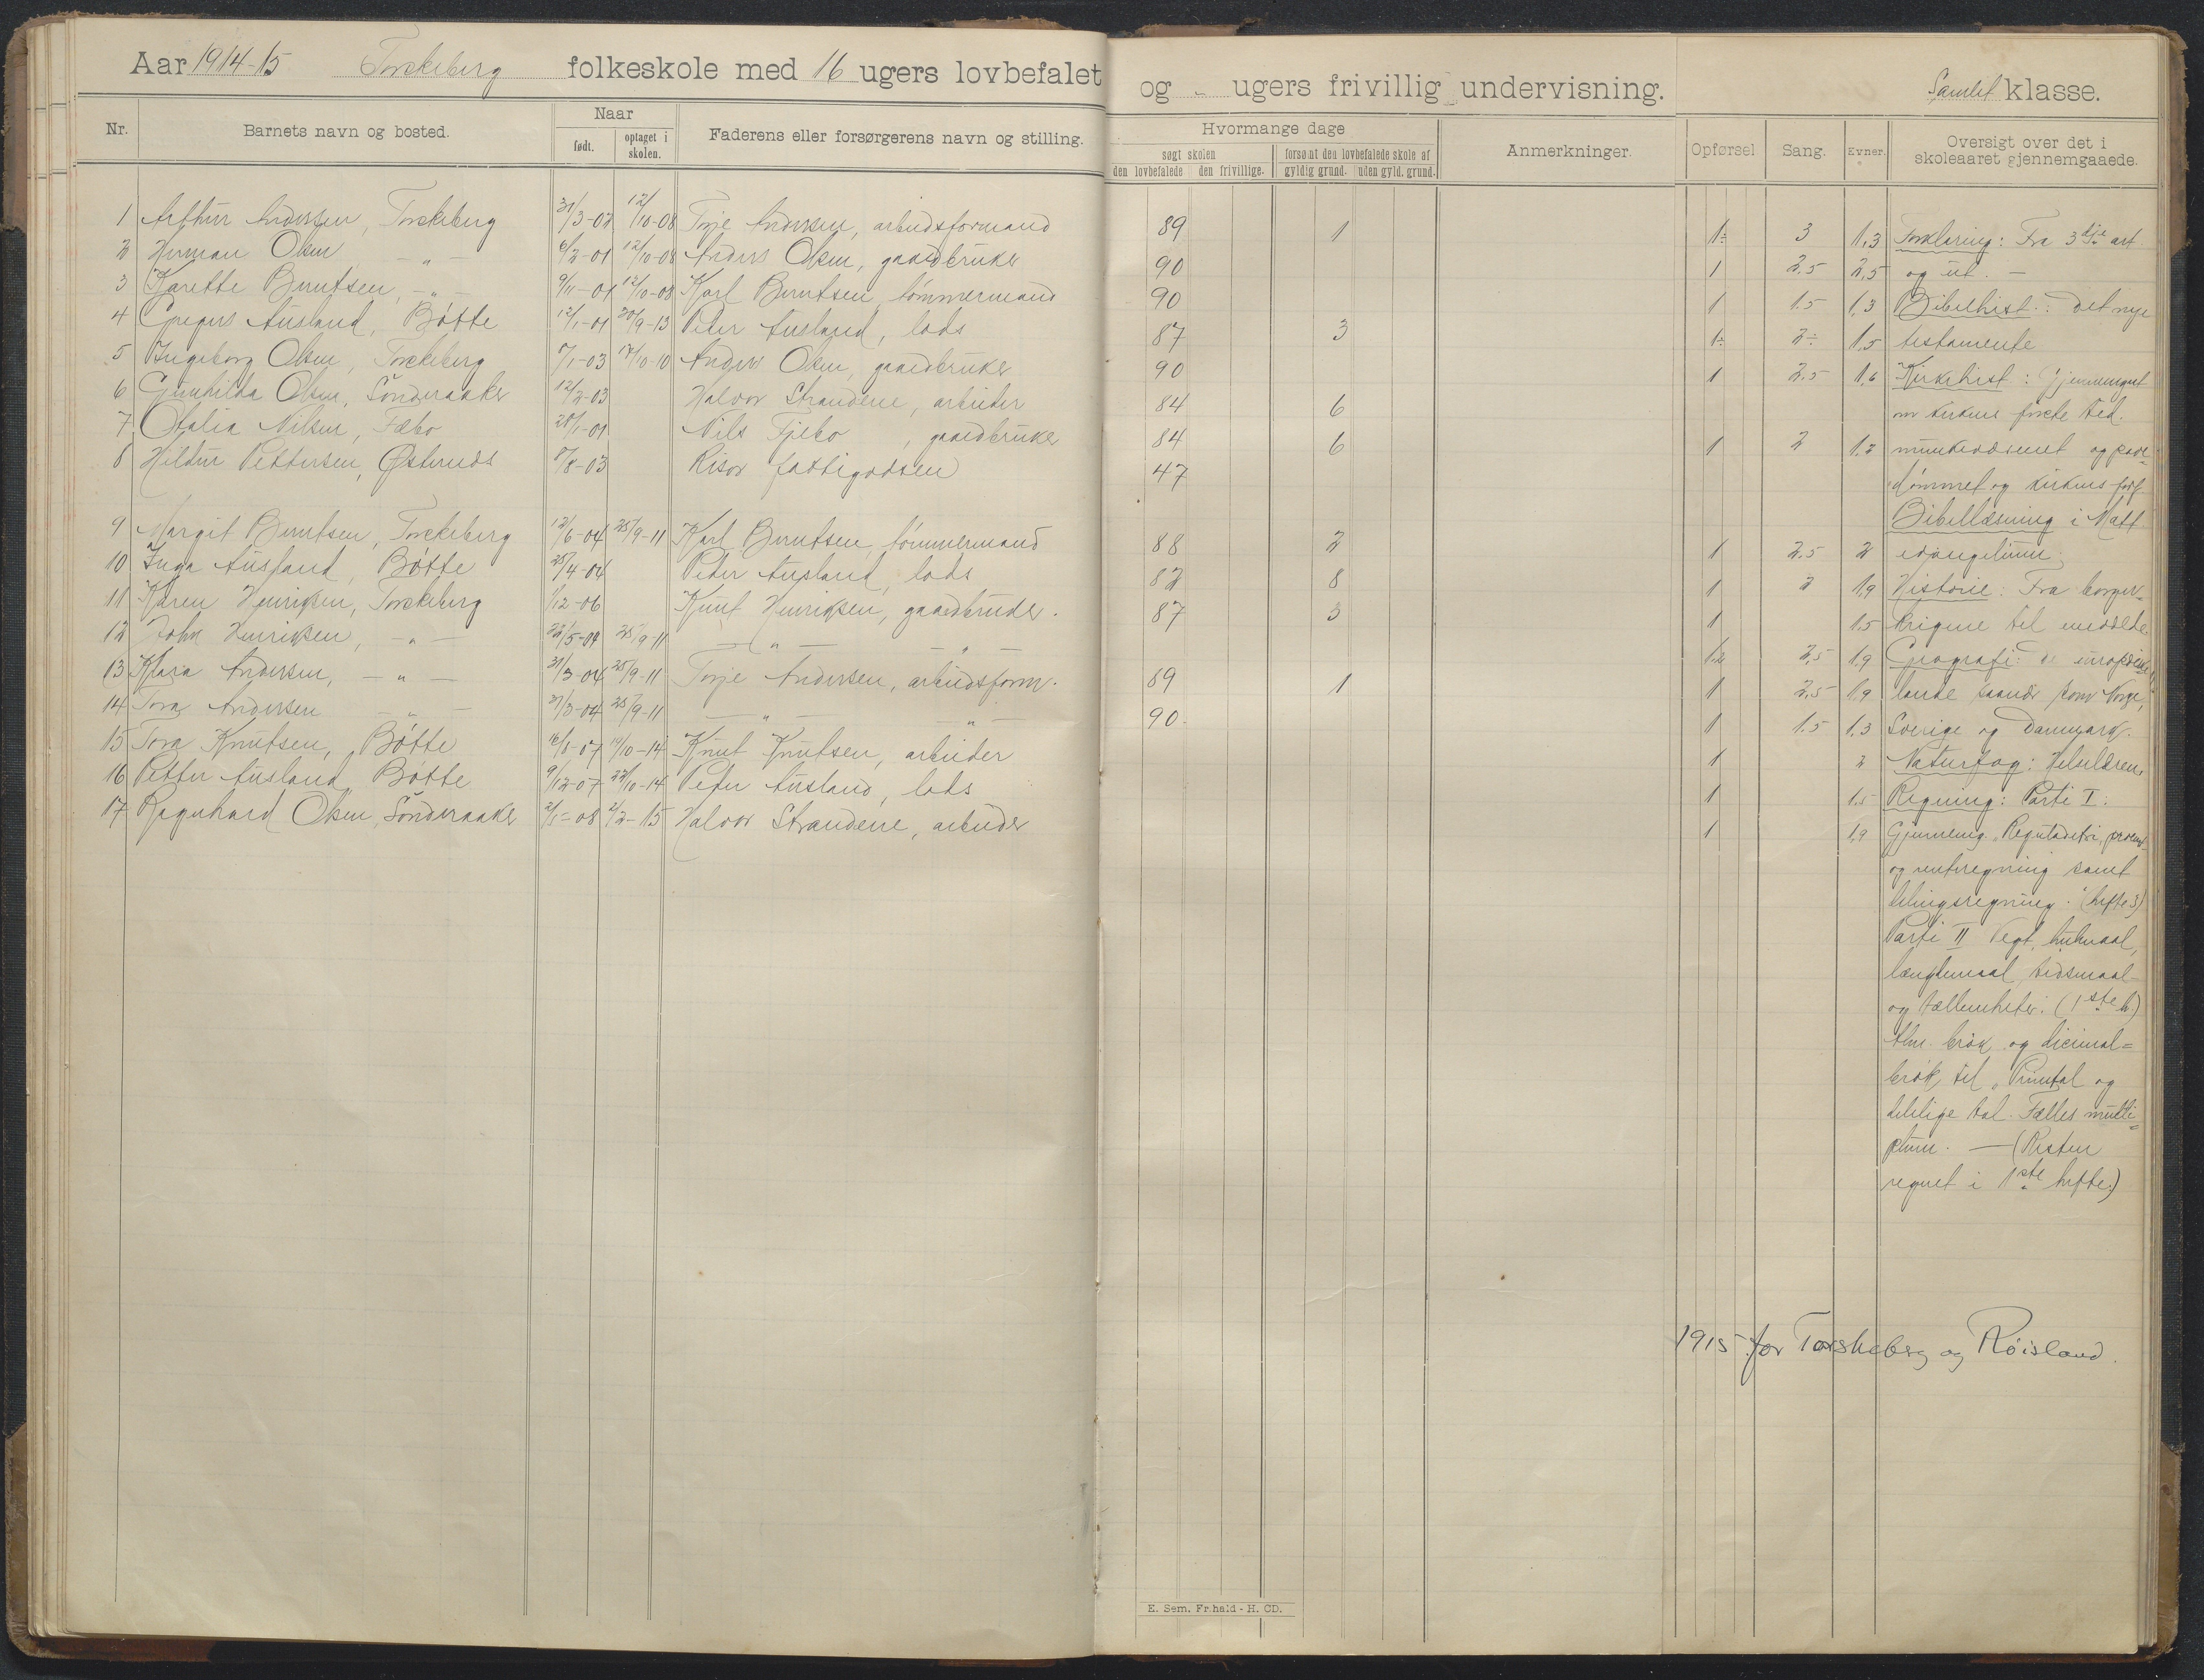 Aar 1914-15 Torskeberg folkeskole med 16 ugers lovbefalet og - ugers frivillig undervisning. Samlet klasse.
Nr. Barnets navn og bosted. Naar født. optaget i skolen. Faderens eller forsørgerens navn og stilling. Hvormange dage søgt skolen den lovbefalede den frivillige. forsømt den lovbefalede skole af gyldig grund. uden gyld. grund. Anmerkninger. Opførsel Sang. Evner. Oversigt over det i skoleaaret gjennemgaaede.
1 Arthur Andersen, Torskeberg 31/3-02 12/10-08 Torje Andersen, arbeidsformand 89 1 1÷ 3 1,3 Forklaring: Fra 3dje art.
2 Herman Olsen — „ — 6/2-01 12/10-08 Anders Olsen, gaardbruker 90 1 2,5 2,5 og ut. —
3 Karette Berntsen, — „ — 9/11-01 12/10-08 Karl Berntsen, tømmermand 90 1 1.5 1,3 Bibelhist.: Det nye
4 Gregers Ausland, Bøtte 12/1-01 20/9-13 Peder Ausland, lods 87 3 1÷ 2÷ 1,5 testamente
5 Ingeborg Olsen, Torskeberg 7/1-03 17/10-10 Anders Olsen, gaardbruker 90 1 2.5 1,6 Kirkehist: Gjennemgaat
6 Gunhilda Olsen, Sønderaaker 12/2-03 Halvor Strandene, arbeider 84 6 om kirkens første tid.
7 Otalia Nilsen, Fæbo 28/1-01 Nils Fjebo, gaardbruker 84 6 1 2 1.2 munkevæsenet og pave-
8 Hildur Pettersen, Østernes 8/8-03 Risør fattigvæsen 47 dømmet og kirkens forf.
Bibellæsning i Matt.
9 Margit Berntsen, Torskeberg 12/6-04 25/9-11 Karl Berntsen, tømmermand 88 2 1 2.5 2 evangelium.
10 Inga Ausland, Bøtte 25/4-04 Peder Ausland, lods 82 8 1 2 1,9 Historie: Fra borger-
11 Karen Henriksen, Torskeberg 1/12-06 Knut Henriksen, gaardbruder. 87 3 1 1.5 krigene til
12 John Henriksen, — „ — 22/5-04 25/9-11 — „ — — „ — 1.2 2,5 1,9 Geografi: de europæiske
13 Klara Andersen, — „ — 31/3-04 25/9-11 Torje Andersen, arbeidsform. 89 1 1 2,5 1,9 lande saanær som Norge,
14 Tora Andersen — „ — 31/3-04 25/9-11 — „ — — „ — 90. 1 1.5 1,3 Sverige og Danmark.
15 Tora Knutsen, Bøtte 16/8-07 19/10-14 Knut Knutsen, arbeider 1 2 Naturfag: Helselæren.
16 Petter Ausland, Bøtte 9/12-07 22/10-14 Peder Ausland, lods 1 1.5 Regning: Parti I:
17 Ragnhard Olsen, Sønderaaker 2/1-08 2/2-15 Halvor Strandene, arbeider 1 1,9 Gjennemg. Regutadetri, procent-
og renteregning samt
delingsregning. (hefte 3)
Parti II Vegt, hulmaal,
længdemaal, tidsmaal
og tælleenheter. (1ste h.)
Alm. brøk og decimal=
brøk, til „Primtal og
delelige tal. Fælles multi=
plum. — (Resten
regnet i 1ste hefte.)
1915 for Torskeberg og Røisland.
E. Sem, Fr.hald - H. CD.